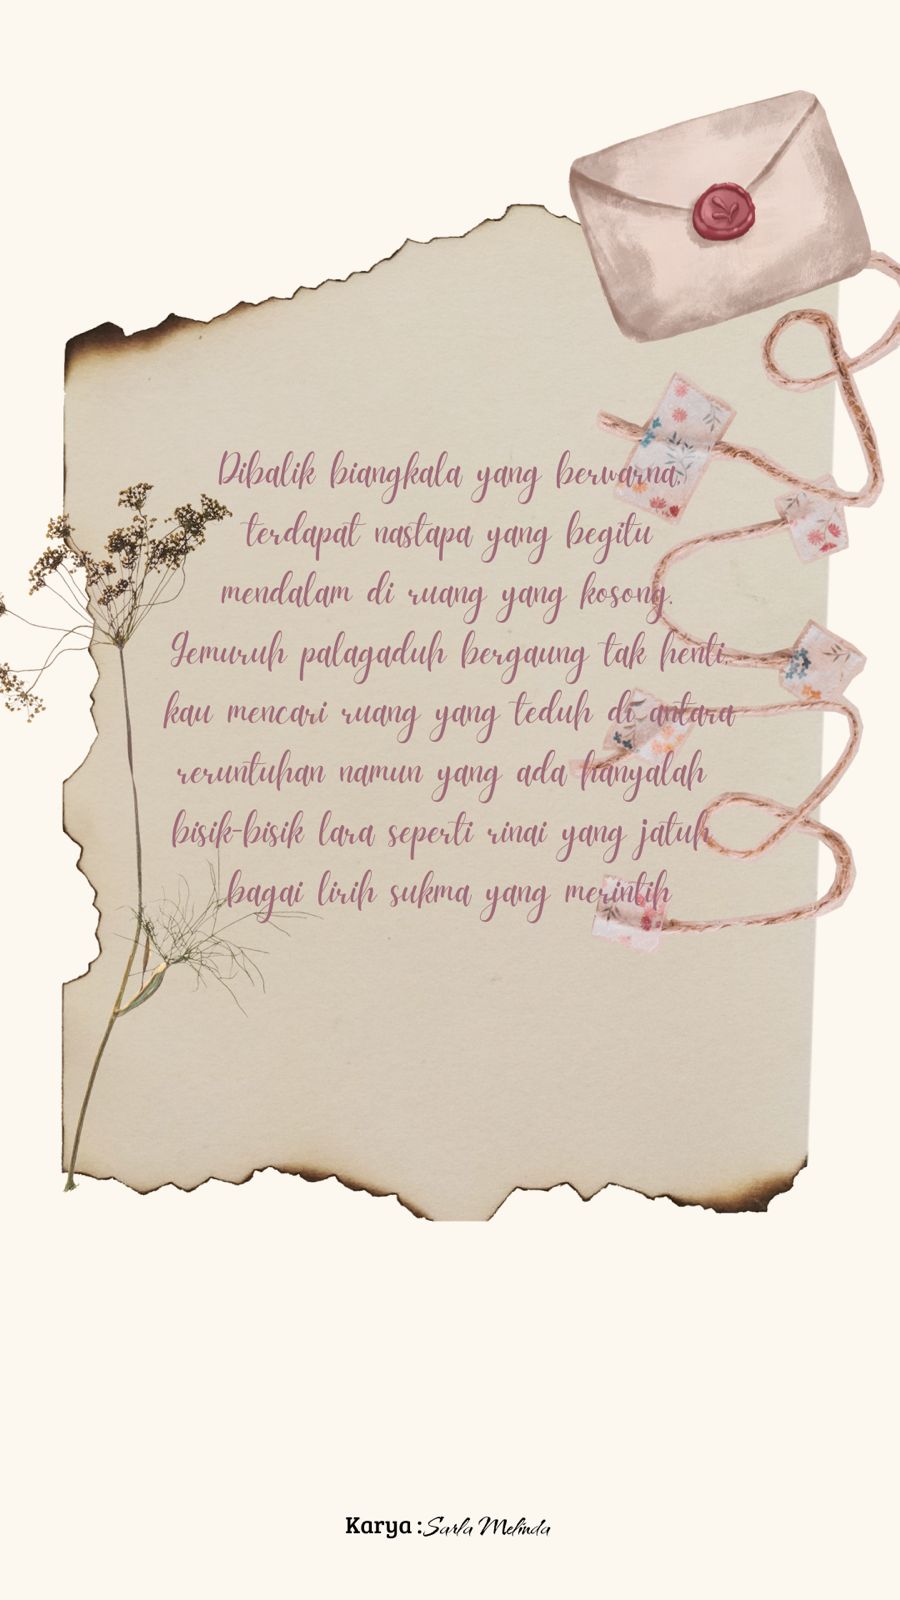 Dibalik biangkala yang berwarna,
terdapat nastapa yang begitu
mendalam di ruang yang kosong.
Gemuruh palagaduh bergaung tak henti,
kau mencari ruang yang teduh di antara
reruntuhan namun yang ada hanyalah
bisik-bisik lara seperti rinai yang jatuh
bagai lirih sukma yang merintih
Karya : Sarla Melinda